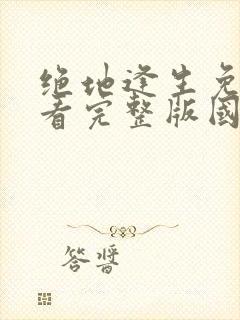 绝地逢生免
看完整版国
答酱